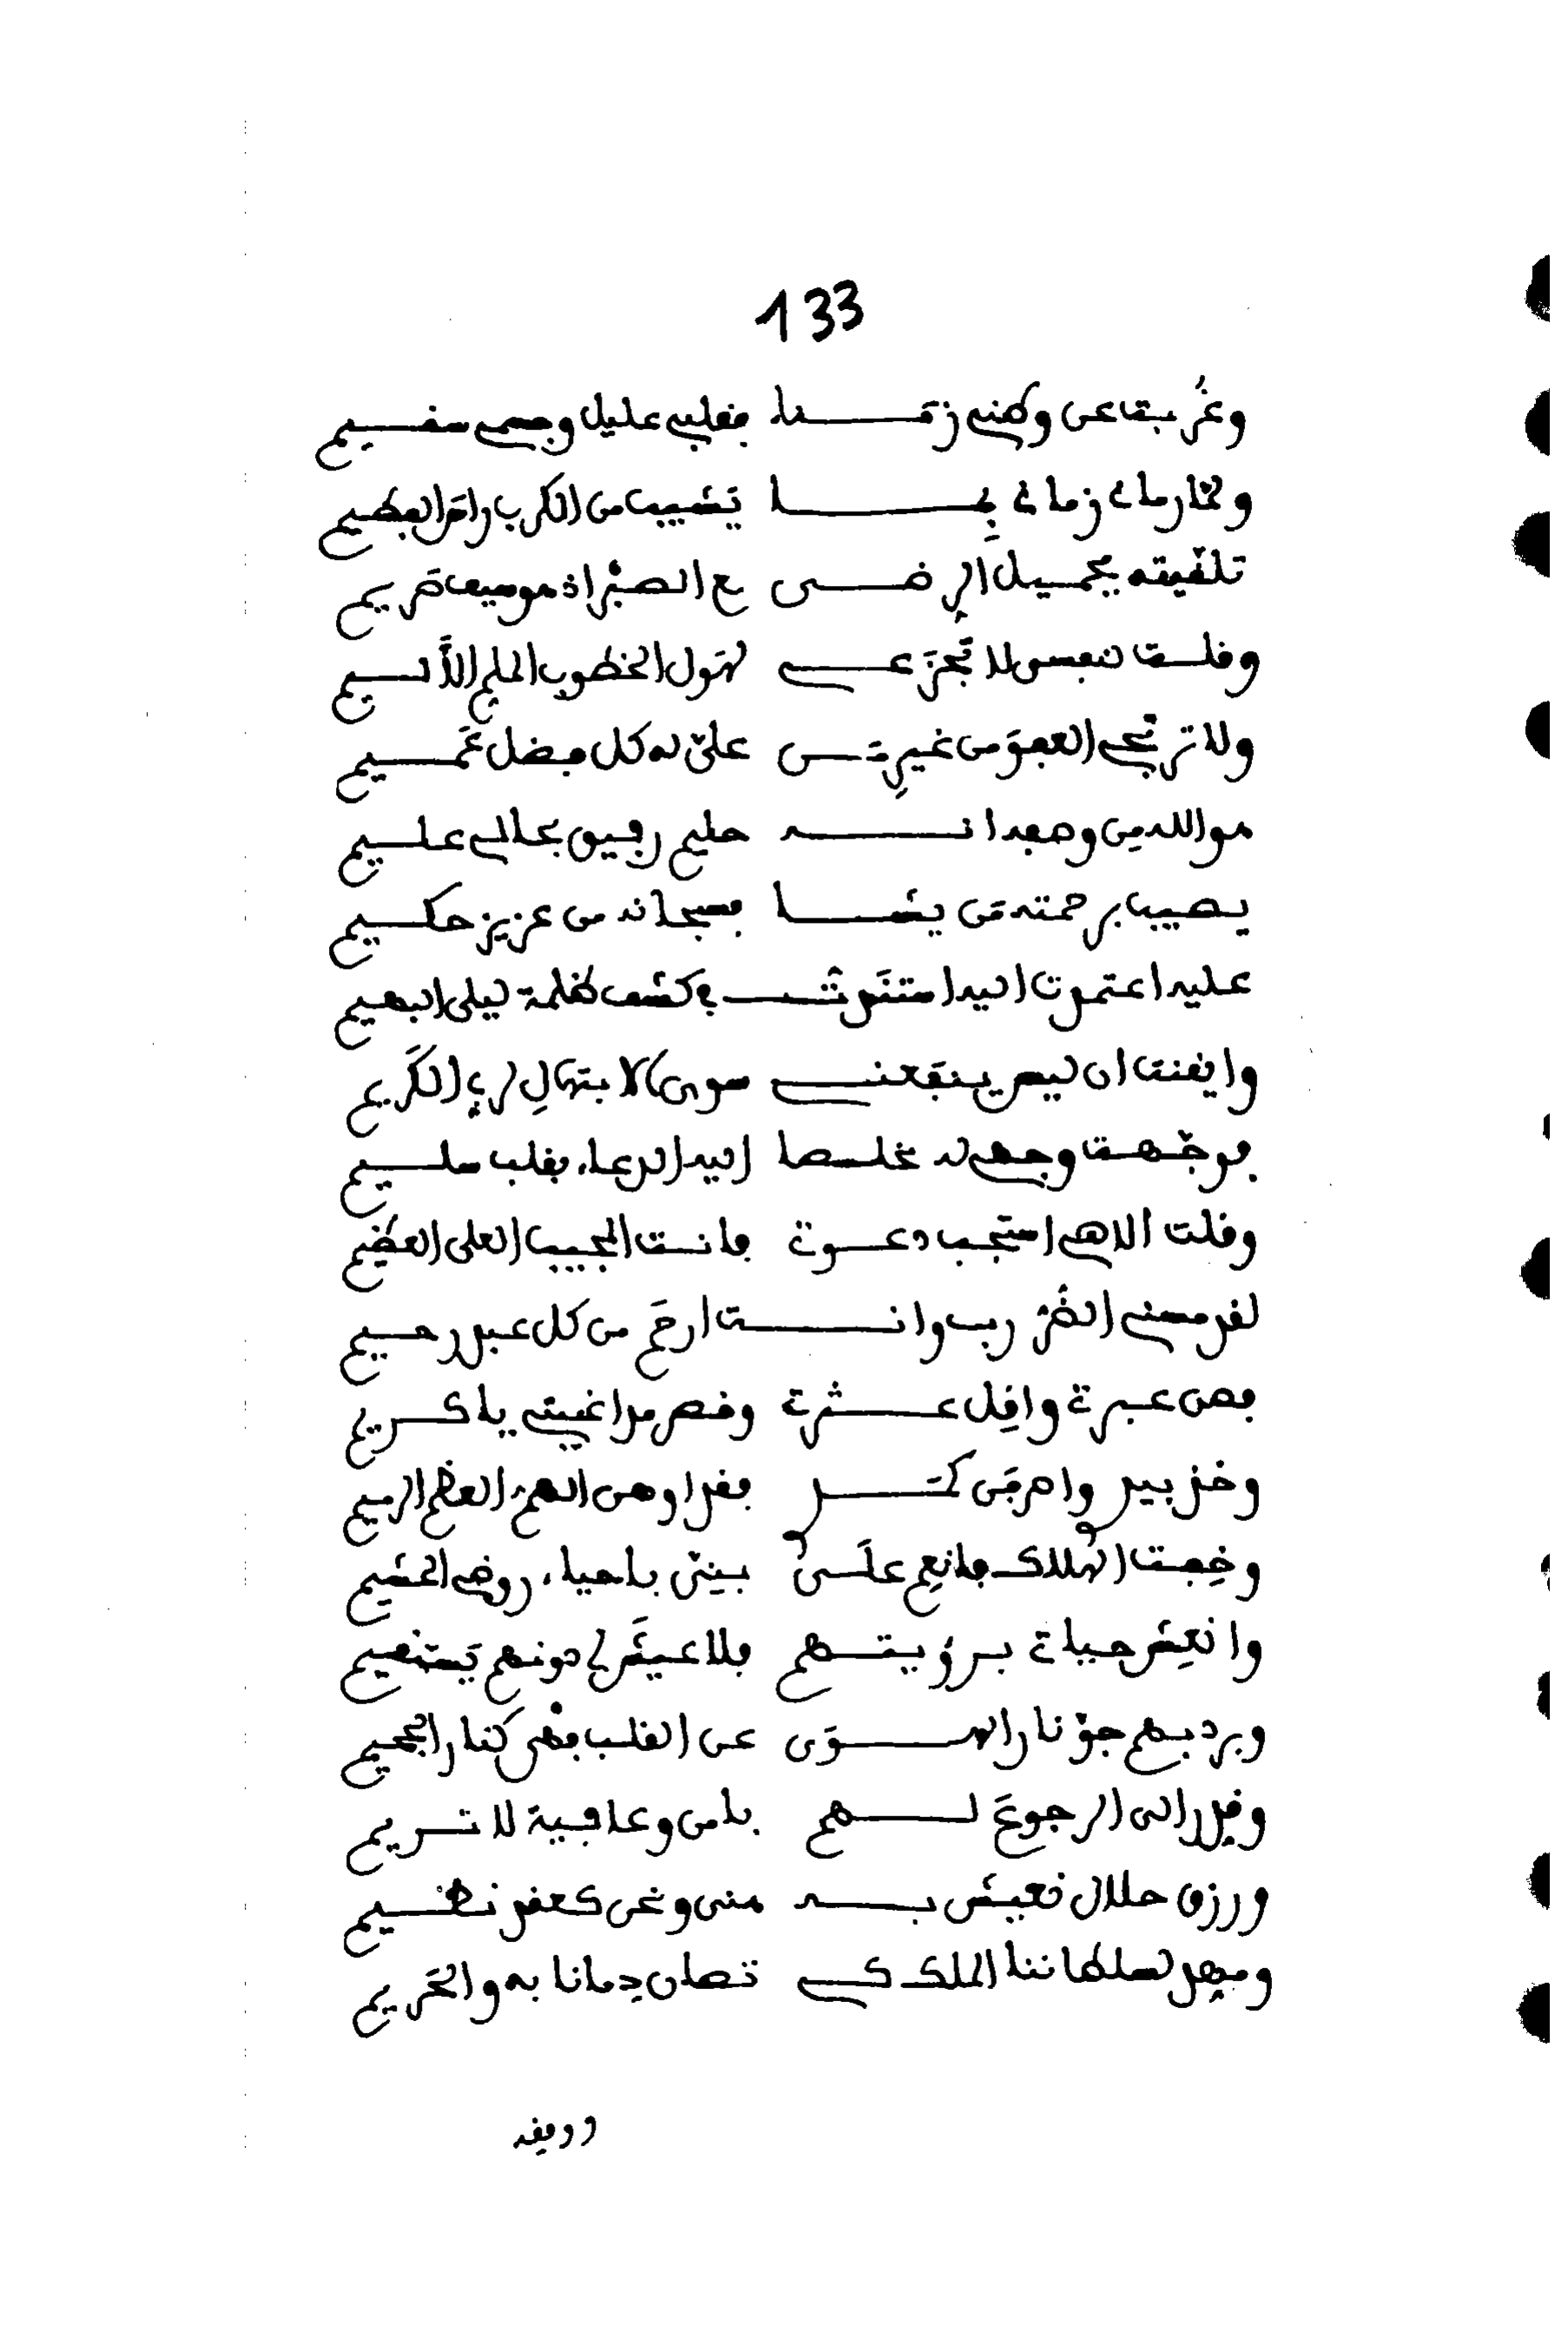 133
وغربت عن وطني زمنا فقلبي عليل وجسمي سقيم
ولما رماني زماني بما يشيب من الكرب رأس العظيم
تلقيته بجميل الرضى مع الصبر إذ هو سيف صريم
وقلت لنفس لا تجزعي لهول الخطوب الملم الأليم
ولا ترتجي العفو من غير من علي له كل فضل عميم
هو الله من وصفه انه حليم رفيق بحالي عليم
يصيب برحمته من يشا فسبحانه من عزيز حكيم
عليه اعتمدت اليه استندت في كشف ظلمة ليلى البهيم
وايقنت ان ليس ينفعني سوى الابتهال لرب الكريم
فوجهت وجهي له مخلصا اليه الدعاء بقلب سليم
وقلت الاهي استجب دعوة فانت المجيب العلى العظيم
لقد مسني الضر رب وانت ارحم من كل عبد رحيم
فصن عبرة واقل عثرة وقصر مدا غيبتي يا كريم
وخذ بيد وامر من كمد فقد اوهن الهم العظم الرميم
وخفت الهلاك فانعم على بيتي باحياء روض الهشيم
وانعش حياة برؤيتهم فلا عيش لي دونهم يستقيم
وبرد بهم جو نار الهوى عن القلب فهي كنار الجحيم
وقدر الى الرجوع لهم بامن وعافية لا تريم
ورزق حلال نعيش به هنى ونحن كعقد نظيم
ومهد لسلطاننا الملك كي تصان دمانا به والحريم
ووفقه